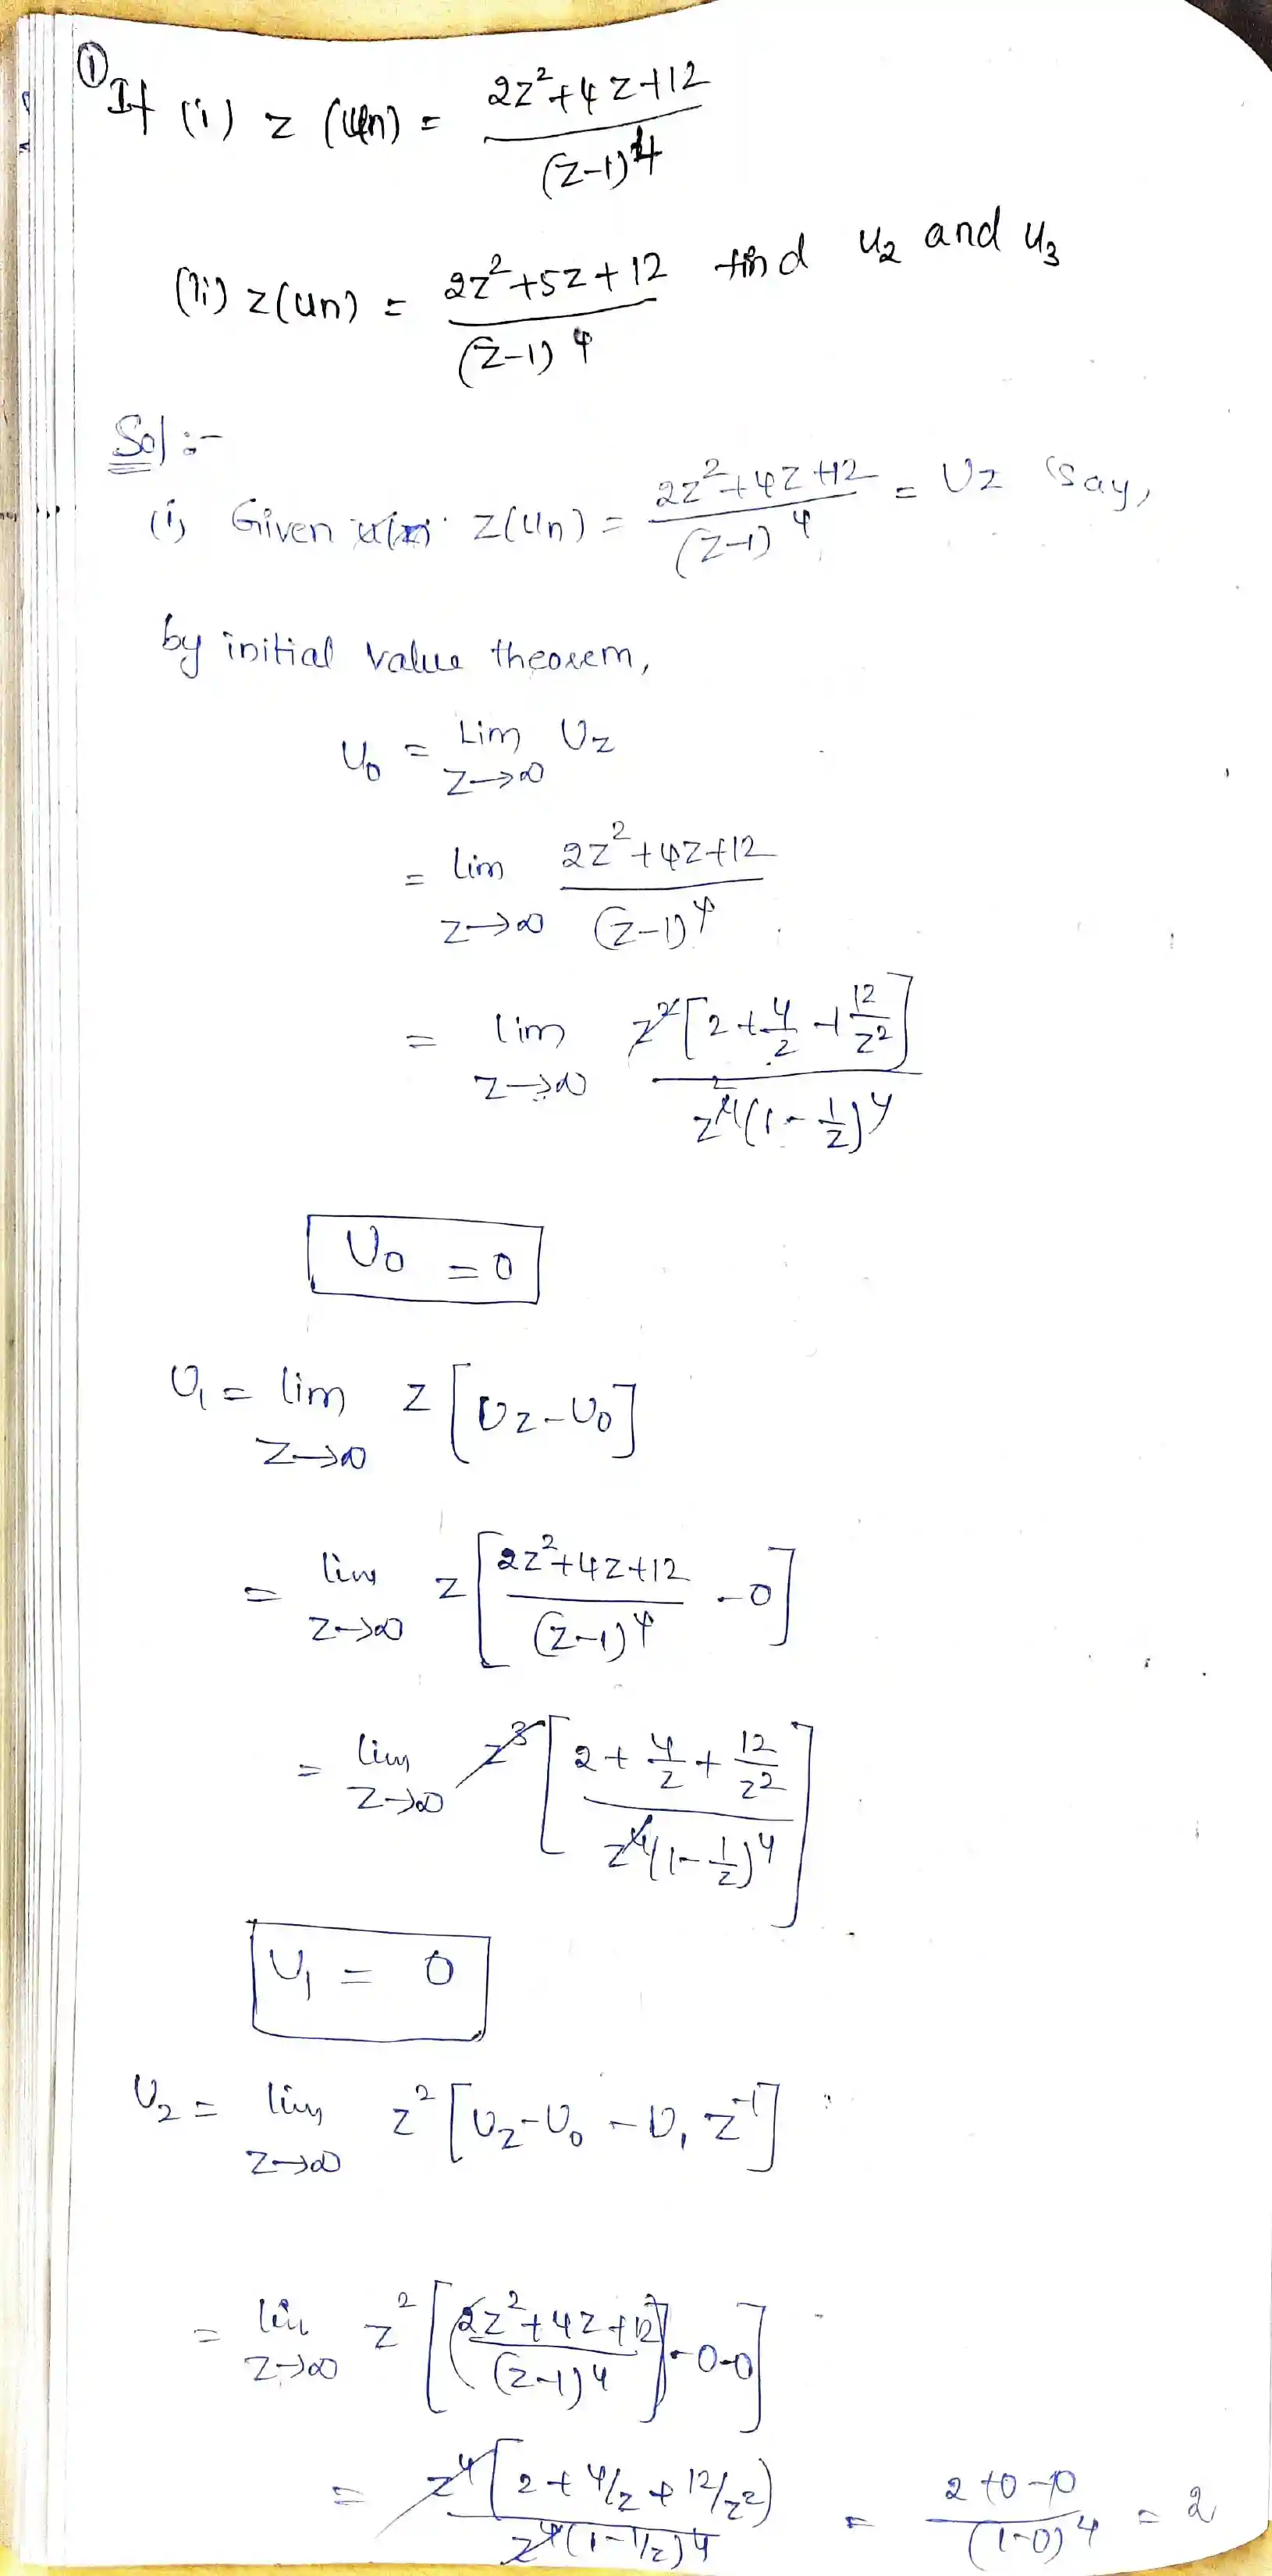 ① If (i) z (un) = 2z²+4z+12 / (z-1)⁴
(ii) z(un) = 2z²+5z+12 / (z-1)⁴ find u₂ and u₃
Sol :-
(i) Given z(un) = 2z²+4z+12 / (z-1)⁴ = Uz (say,
by initial value theorem,
U₀ = Lim z→∞ Uz
= lim z→∞ 2z²+4z+12 / (z-1)⁴
= lim z→∞ z²[2+4/z+12/z²] / z⁴(1-1/z)⁴
U₀ = 0
U₁ = lim z→∞ z[Uz-U₀]
= lim z→∞ z[2z²+4z+12 / (z-1)⁴ -0]
= lim z→∞ z³[2+4/z+12/z² / z⁴(1-1/z)⁴]
U₁ = 0
U₂ = lim z→∞ z²[Uz-U₀-U₁z⁻¹]
= lim z→∞ z²[(2z²+4z+12 / (z-1)⁴)-0-0]
= z⁴[2+4/z+12/z²) / z⁴(1-1/z)⁴ = 2+0+0 / (1-0)⁴ = 2